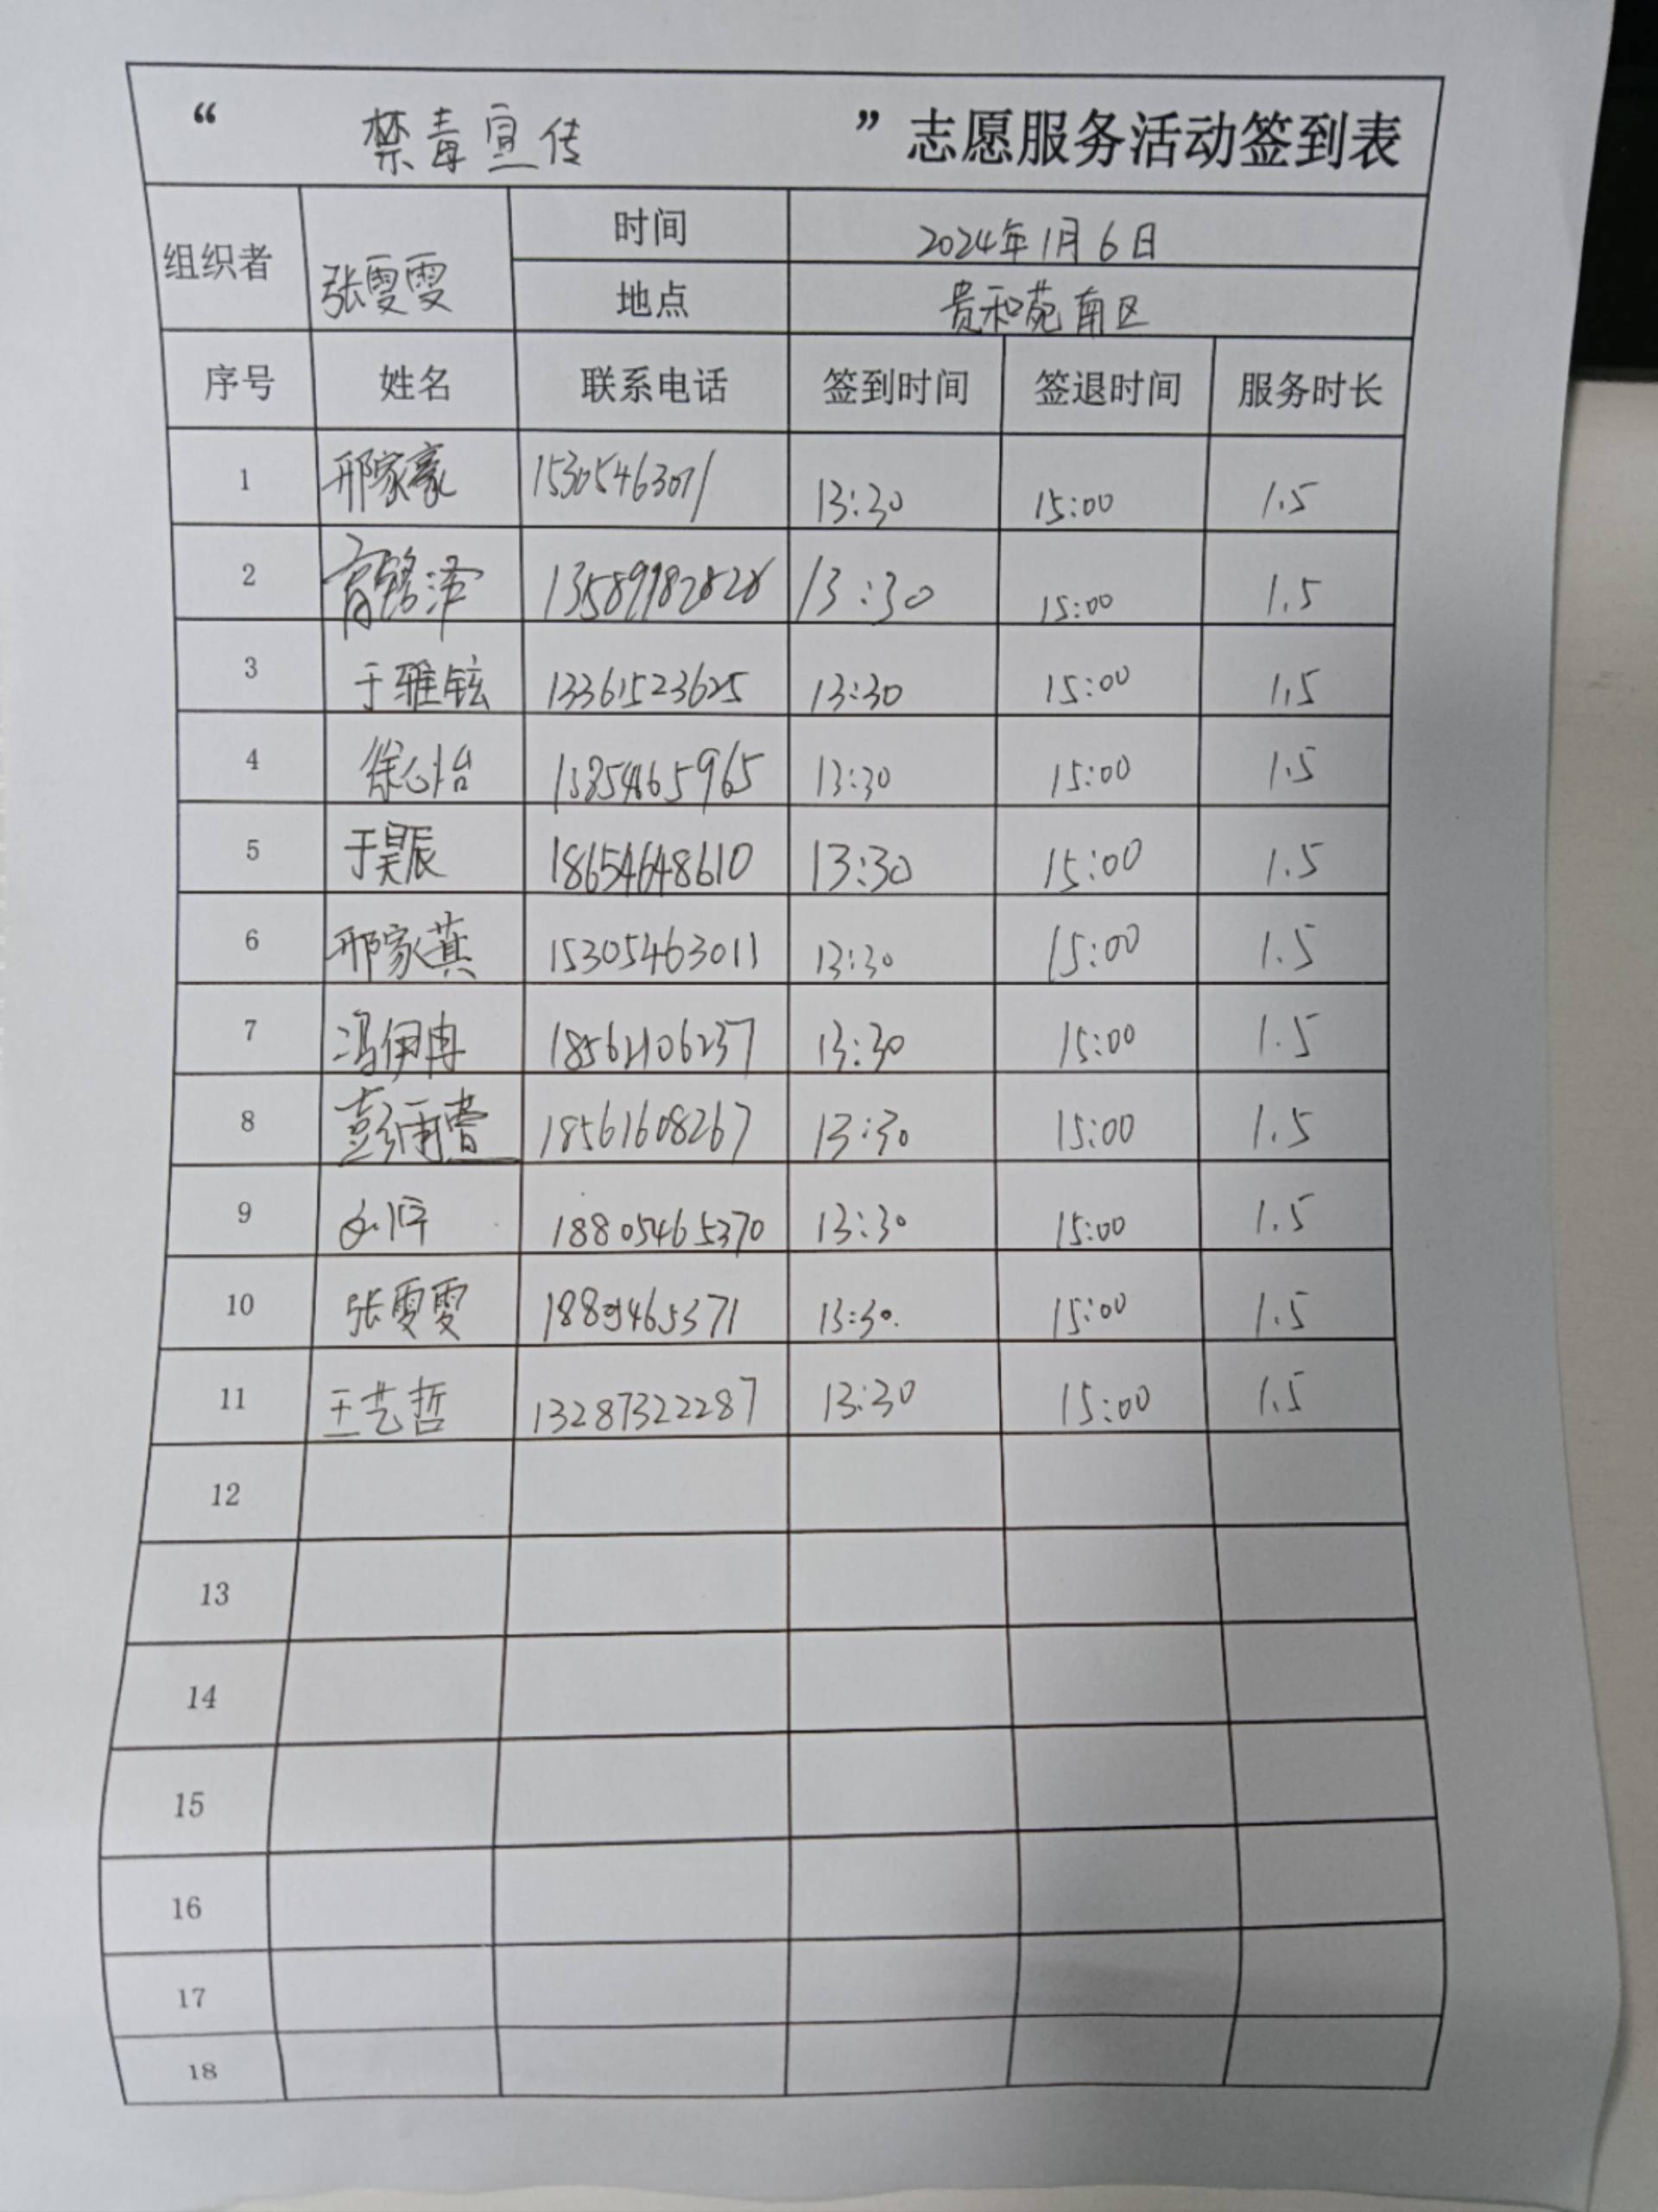 “ 禁毒宣传 ” 志愿服务活动签到表
组织者 张雯雯 时间 2024年1月6日
地点 贵和苑南区
序号 姓名 联系电话 签到时间 签退时间 服务时长
1 邢家豪 15305463011 13:30 15:00 1.5
2 13589982828 13:30 15:00 1.5
3 于雅铉 13361523625 13:30 15:00 1.5
4 徐心怡 13854665965 13:30 15:00 1.5
5 于昊辰 18654648610 13:30 15:00 1.5
6 邢家萁 15305463011 13:30 15:00 1.5
7 冯伊冉 18562106237 13:30 15:00 1.5
8 18561608267 13:30 15:00 1.5
9 18805465370 13:30 15:00 1.5
10 张雯雯 18805465371 13:30 15:00 1.5
11 王艺哲 13287322287 13:30 15:00 1.5
12
13
14
15
16
17
18